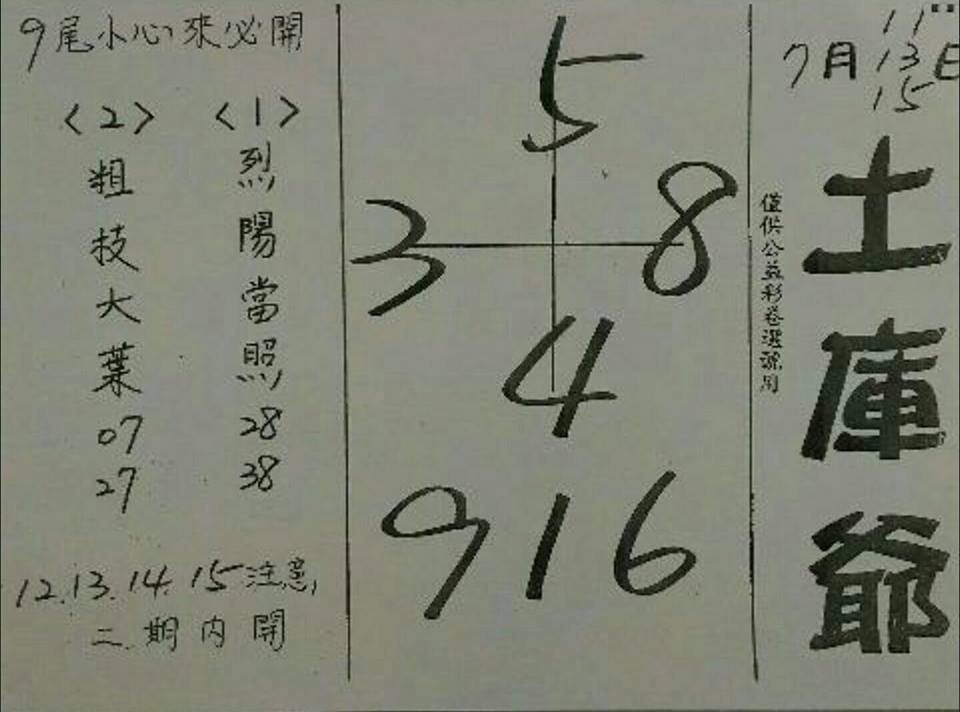 7月 11 13 15日
土庫爺
僅供公益彩卷選號用
5
3 8
4
9 1 6
9尾小心來必開
<1>
烈陽當照
28
38
<2>
粗枝大葉
07
27
12.13.14.15注意,
二期內開